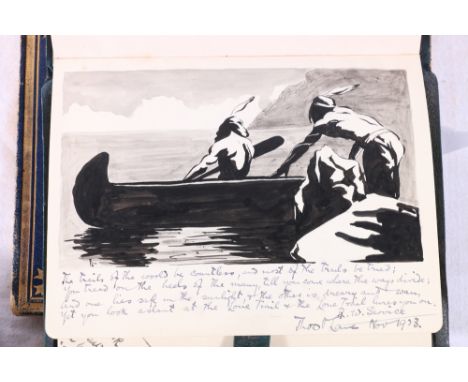 The trails of the world be countless, and most of the trails be tried;
You tread on the heels of the many, till you come where the ways divide;
And one lies safe in the sunlight & the other is dreary and wan,
Yet you look aslant at the Lone Trail & the Lone Trail lures you on.
R. W. Service
Nov 1938.